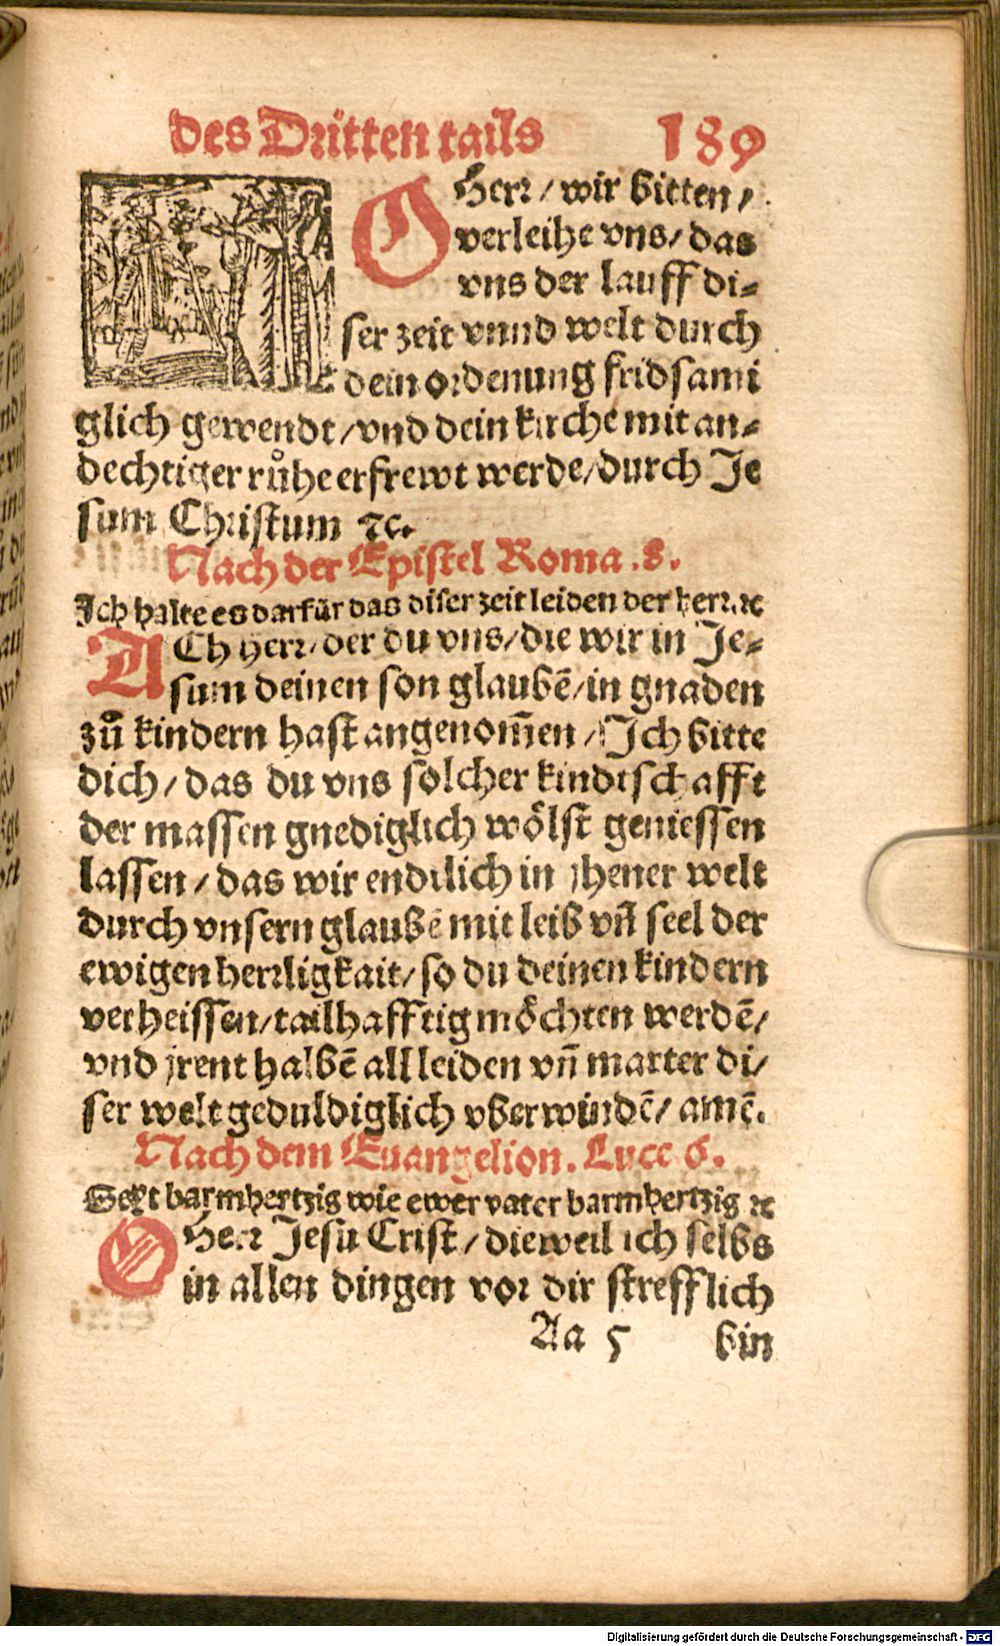 des Dritten tails 189
O Herr / wir bitten /
verleihe vns / das
vns der lauff di⸗
ser zeit vnnd welt durch
dein ordenung fridsami
glich gewendt / vnd dein kirche mit an⸗
dechtiger růhe erfrewt werde / durch Je
sum Christum ⁊c.
Nach der Epistel Roma. 8.
Ich halte es darfür das diser zeit leiden der herr. ⁊c
ACh herr / der du vns / die wir in Je⸗
sum deinen son glaubē / in gnaden
zů kindern hast angenom̄en / Ich bitte
dich / das du vns solcher kindtschafft
der massen gnediglich wölst geniessen
lassen / das wir endtlich in jhener welt
durch vnsern glaubē mit leib vn̄ seel der
ewigen herrligkait / so du deinen kindern
verheissen / tailhafftig möchten werdē /
vnd jrent halbē all leiden vn̄ marter di /
ser welt geduldiglich vberwindē / amē.
Nach dem Euangelion. Luce 6.
Seyt barmhertzig wie ewer vater barmhertzig ⁊c
O Herr Jesu Crist / dieweil ich selbs
in allen dingen vor dir strefflich
Aa 5 bin
Digitalisierung gefördert durch die Deutsche Forschungsgemeinschaft - DFG